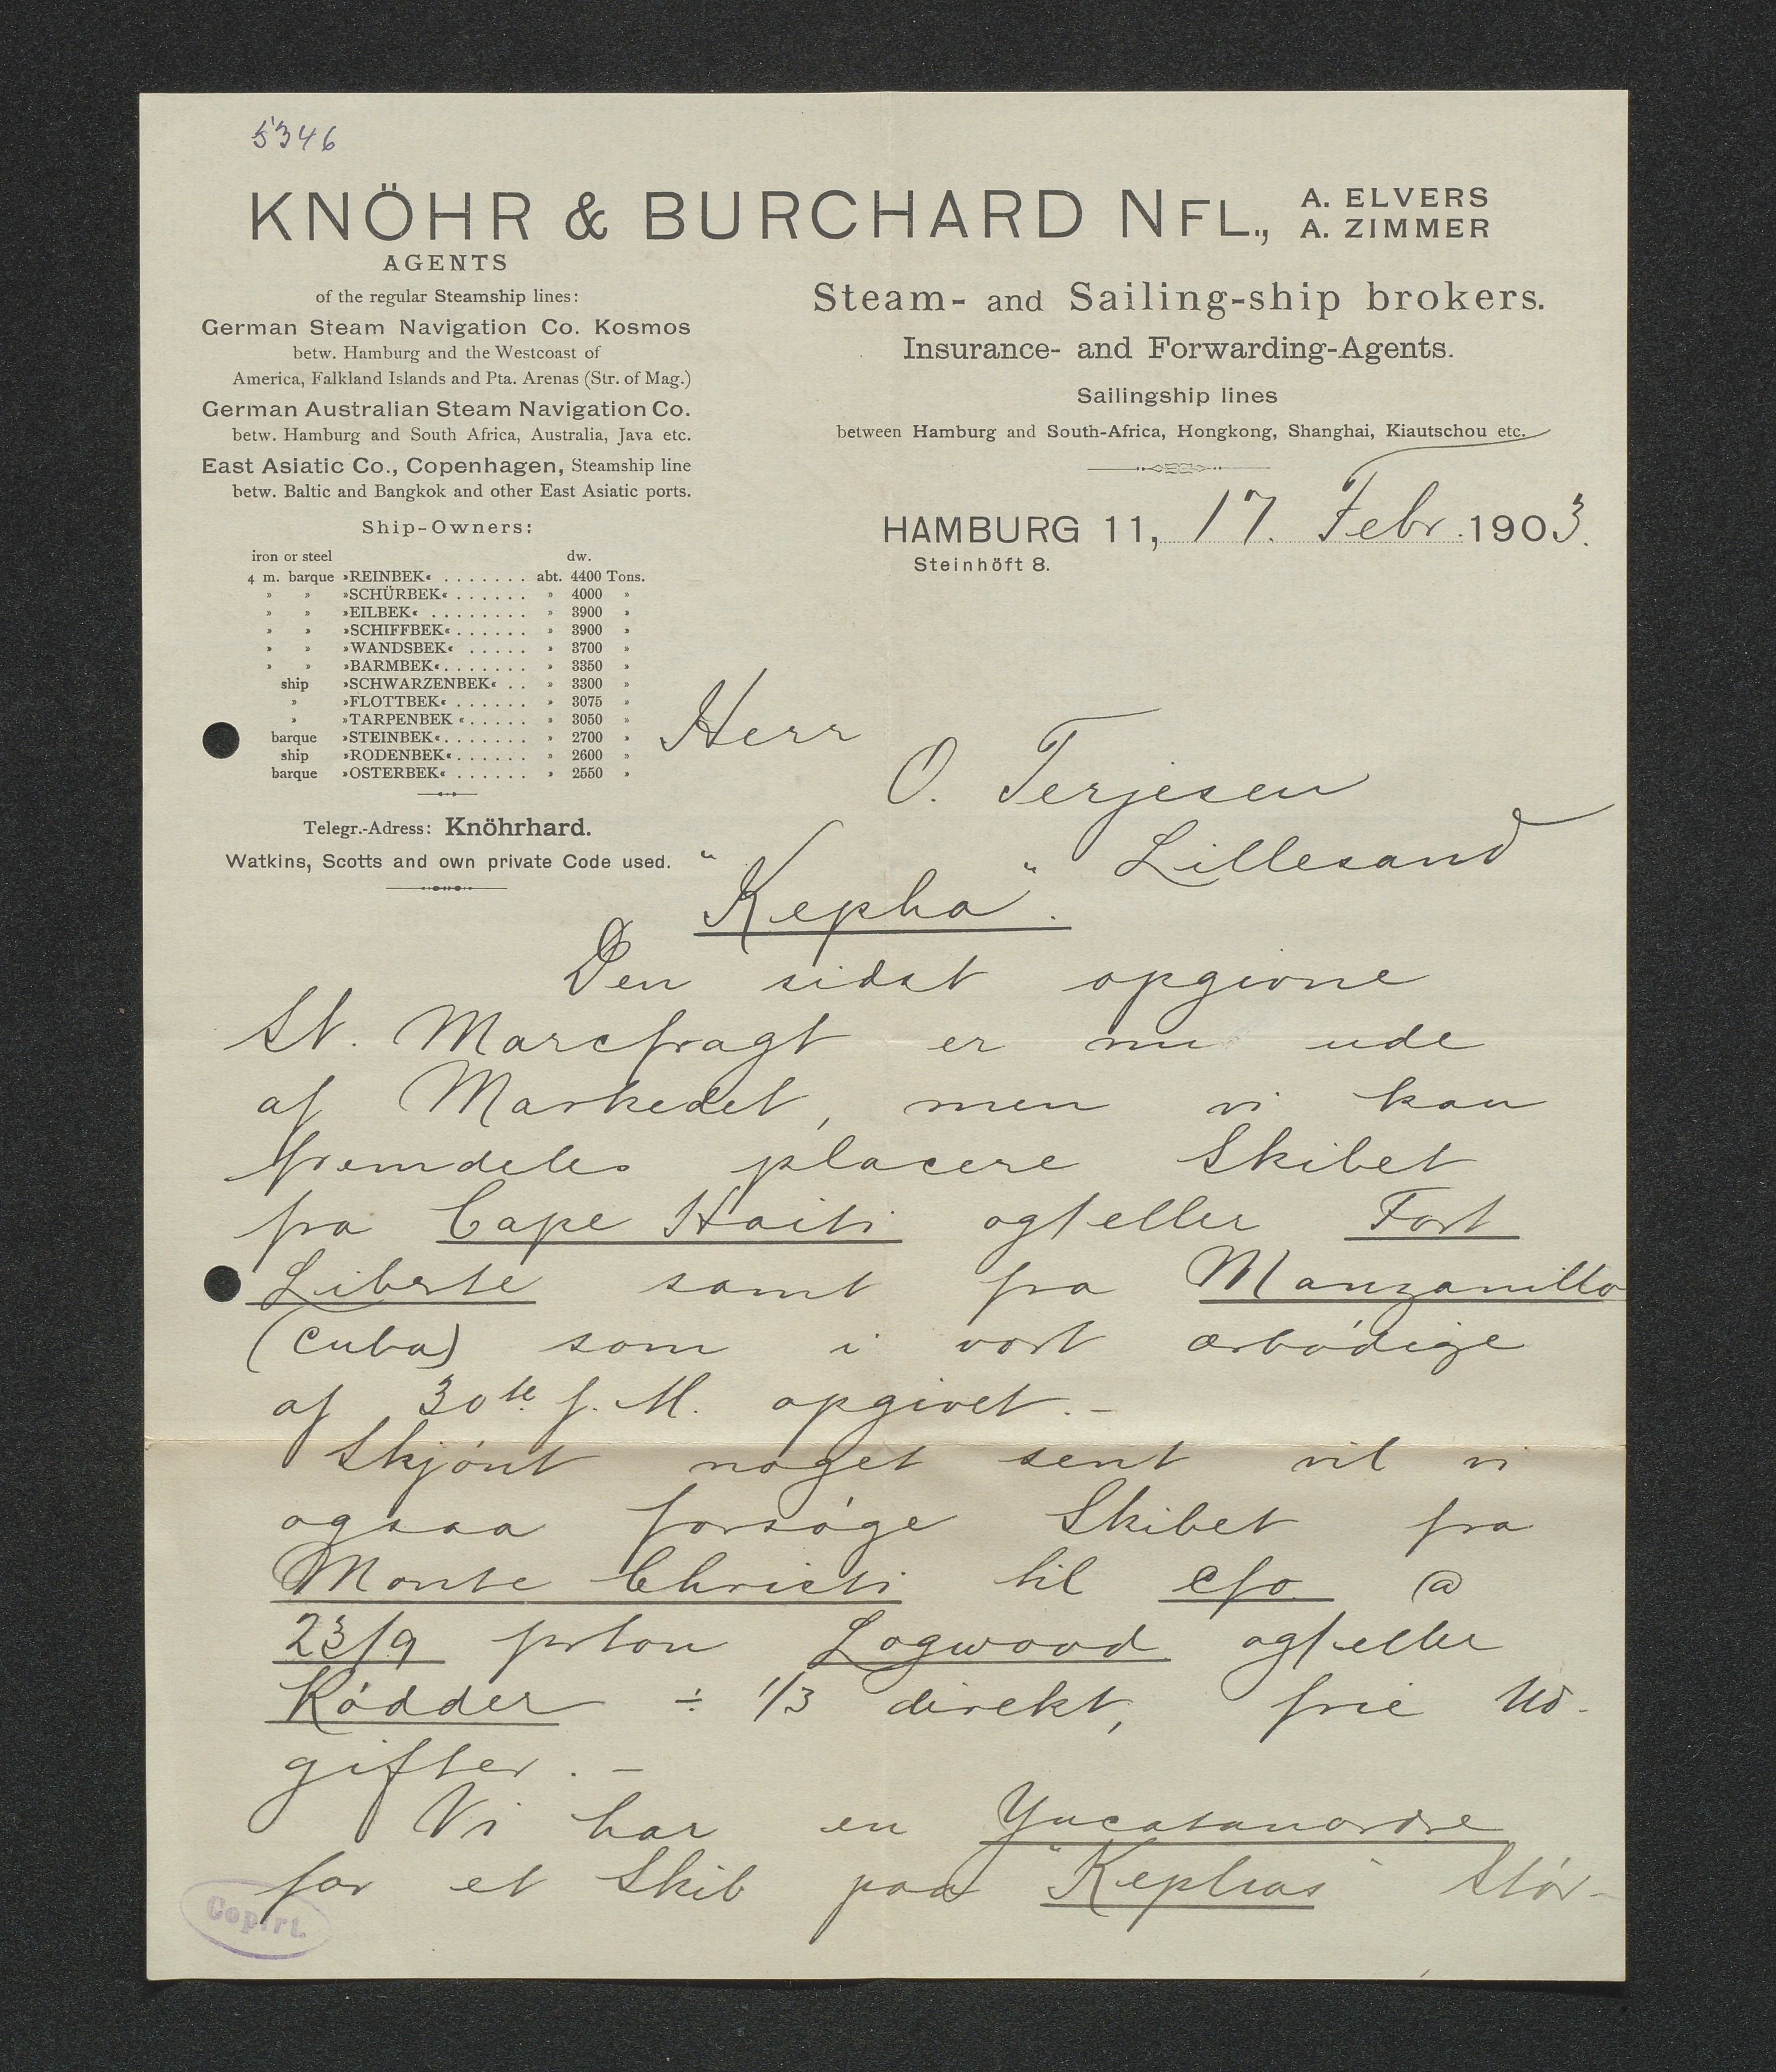 5346
KNÖHR & BURCHARD NFL., A. ELVERS
A. ZIMMER
AGENTS
of the regular Steamship lines:
German Steam Navigation Co. Kosmos
betw. Hamburg and the Westcoast of
America, Falkland Islands and Pta. Arenas (Str. of Mag.)
German Australian Steam Navigation Co.
betw. Hamburg and South Africa, Australia, Java etc.
East Asiatic Co., Copenhagen, Steamship line
betw. Baltic and Bangkok and other East Asiatic ports.
Ship-Owners:
iron or steel dw.
4 m. barque »REINBEK« . . . . . . . abt. 4400 Tons.
» » »SCHÜRBEK« . . . . . . » 4000 »
» » »EILBEK« . . . . . . . . » 3900 »
» » »SCHIFFBEK« . . . . . . » 3900 »
» » »WANDSBEK« . . . . . » 3700 »
» » »BARMBEK« . . . . . . . » 3350 »
ship »SCHWARZENBEK« . . » 3300 »
» »FLOTTBEK« . . . . . . » 3075 »
» »TARPENBEK « . . . . . » 3050 »
barque »STEINBEK« . . . . . . . » 2700 »
ship »RODENBEK« . . . . . . » 2600 »
barque »OSTERBEK« . . . . . . » 2550 »
Telegr.-Adress: Knöhrhard.
Watkins, Scotts and own private Code used.
Steam- and Sailing-ship brokers.
Insurance- and Forwarding-Agents.
Sailingship lines
between Hamburg and South-Africa, Hongkong, Shanghai, Kiautschou etc.
HAMBURG 11, 17. Febr. 1903.
Steinhöft 8.
Herr
O. Terjesen
Lillesand
"Kepha".
Den sidst opgivne
St. Marcfragt er nu ude
af Markedet, men vi kan
fremdeles placere Skibet
fra Cape Haiti og/eller Fort
Liberte samt fra Manzanillo
(Cuba) som i vort ærbödige
af 30te f. M. opgivet. -
Skjönt noget sent vil vi
ogsaa forsöge Skibet fra
Monte Christi til cfo. @
23/9 prton Logwood og/eller
Rödder ÷ 1/3 direkt, frie Ud-
gifter. -
Vi har en Yucatanordre
for et Skib paa "Kephas" Stör-
Copirt.